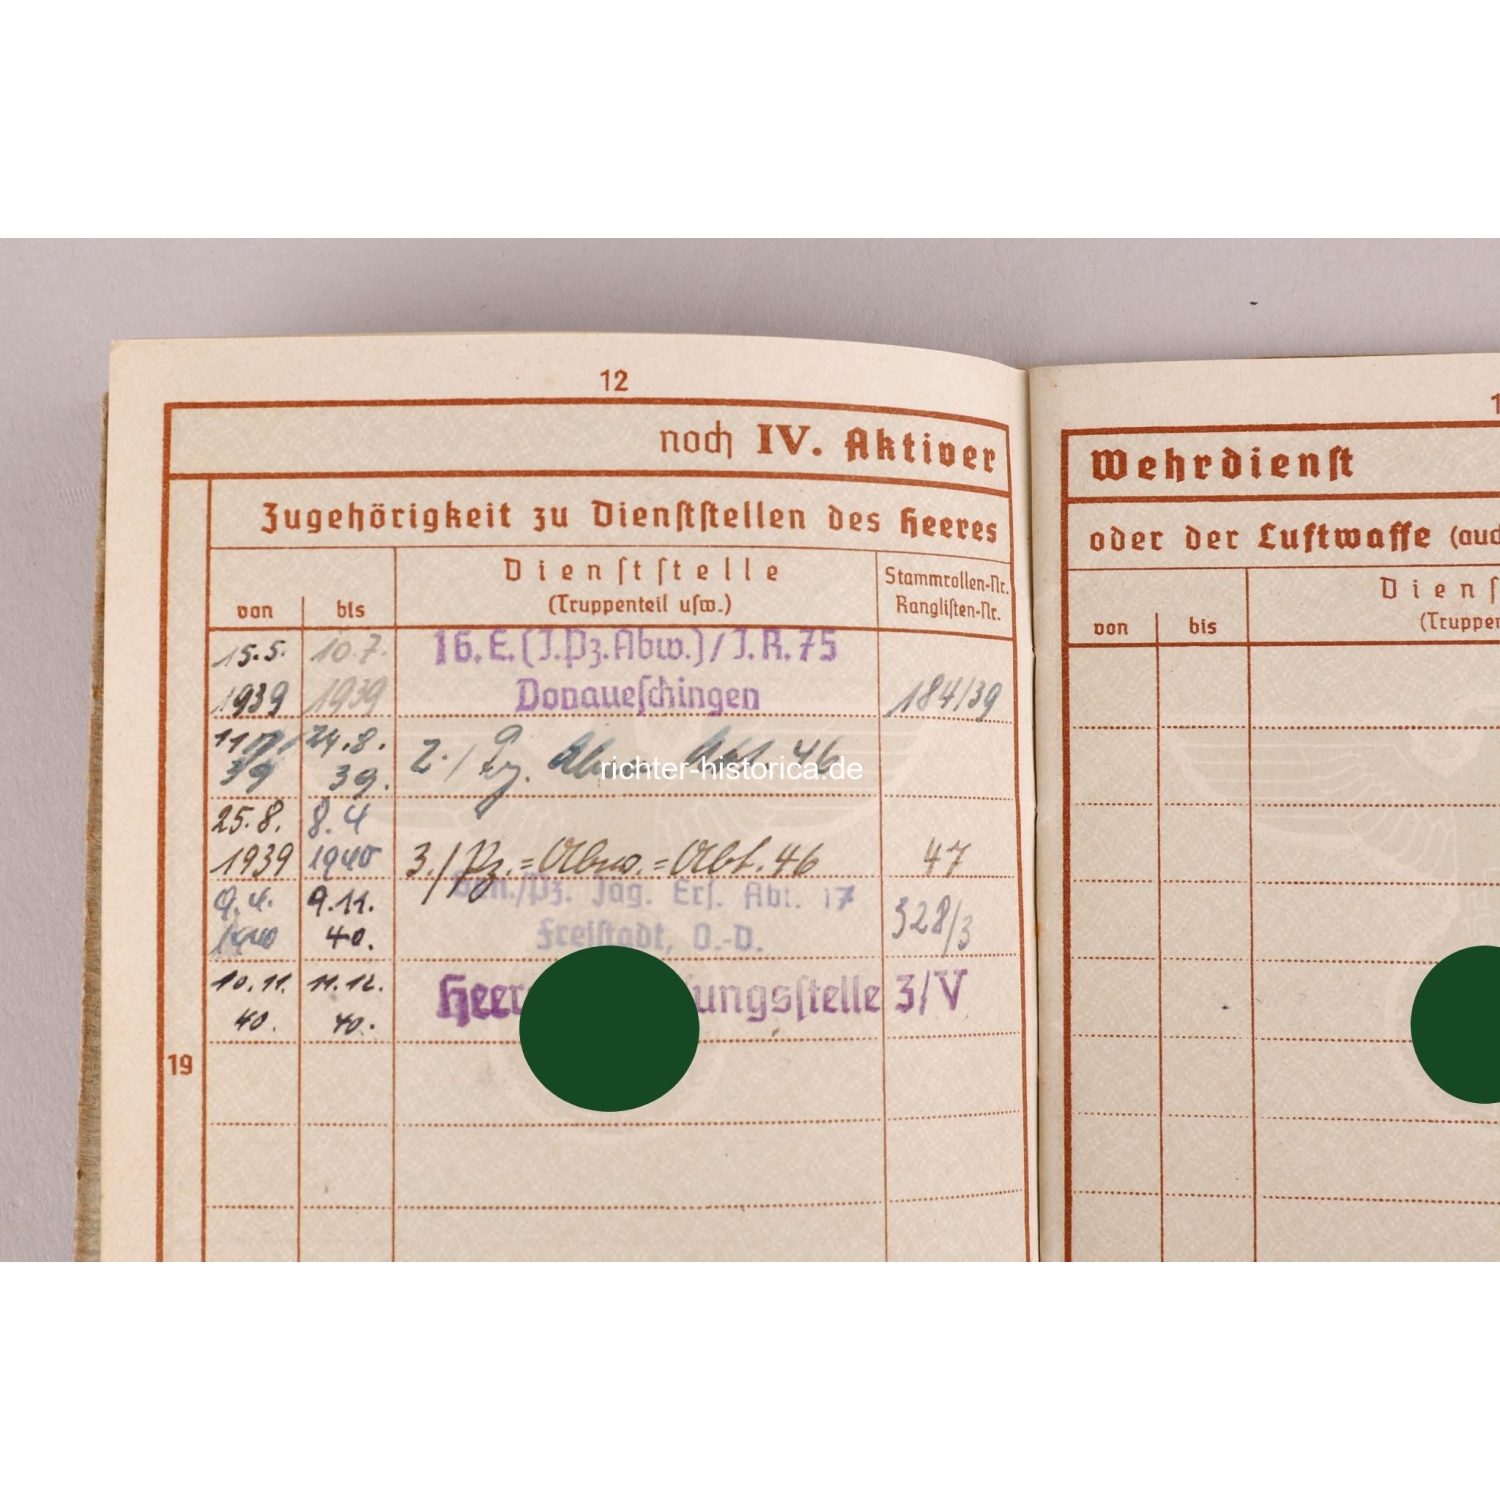 12
noch IV. Aktiver
Zugehörigkeit zu Dienststellen des Heeres
von bis
Dienststelle
(Truppenteil usw.)
Stammrollen-Nr.
Ranglisten-Nr.
15.5. 10.7. 16. E. (J. Pz. Abw.) / J. R. 75
1939 1939 Donaueschingen 184/39
24.8. 2./ Pz. Abw. Abt. 46
39 39.
richter-historica.de
25.8. 8.4
1939 1940 3./Pz.=Abw.=Abt. 46 47
9.4. 9.11. /Pz. Jäg. Ers. Abt. 17
1940 40. Freistadt, O.-D. 328/3
10.11. 11.12. Heer ungsstelle 3/V
40. 40.
19
Wehrdienst
oder der Luftwaffe (auc
von bis
Diens
(Truppen